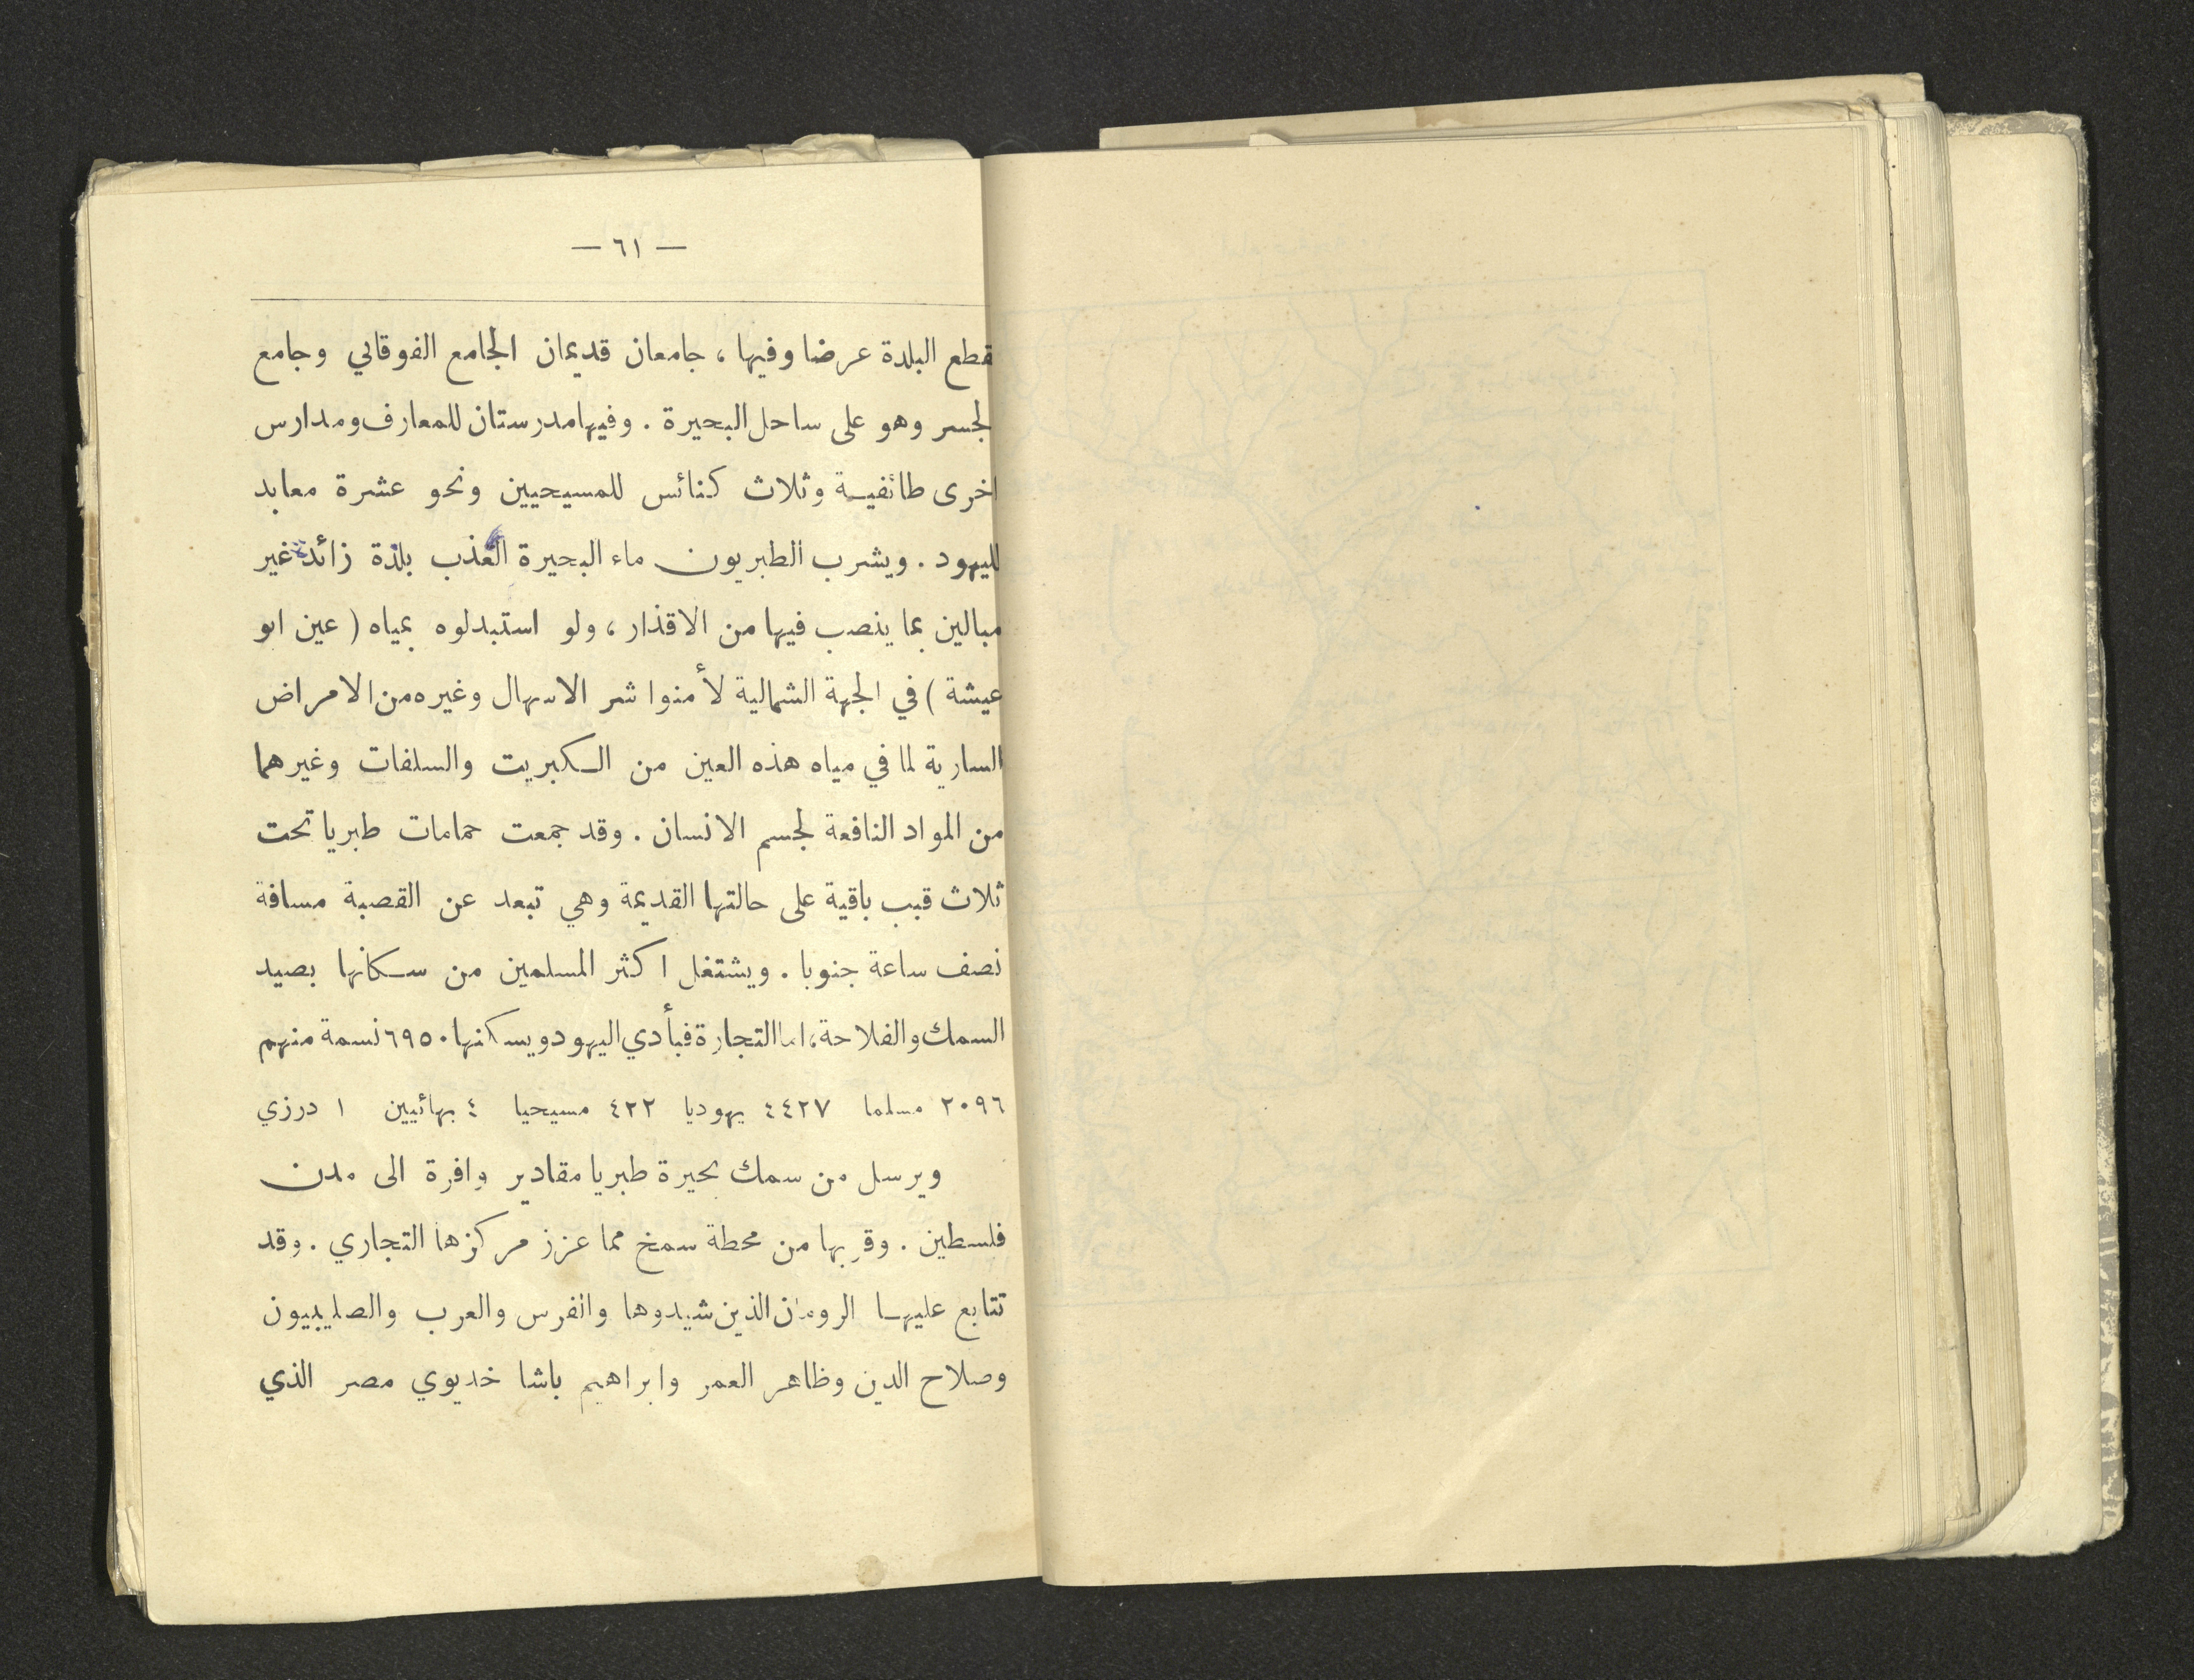 — ٦١ —
قطع البلدة عرضا وفيها ، جامعان قديمان الجامع الفوقاني وجامع
لجسر وهو على ساحل البحيرة . وفيها مدرستان للمعارف ومدارس
اخرى طائفية وثلاث كنائس للمسيحيين ونحو عشرة معابد
لليهود . ويشرب الطبريون ماء البحيرة العذب بلذة زائدة غير
مبالين بما ينصب فيها من الاقذار ، ولو استبدلوه بمياه ( عين ابو
عيشة ) في الجهة الشمالية لأمنوا شر الاسهال وغيره من الامراض
السارية لما في مياه هذه العين من الكبريت والسلفات وغيرهما
من المواد النافعة لجسم الانسان . وقد جمعت حمامات طبريا تحت
ثلاث قبب باقية على حالتها القديمة وهي تبعد عن القصبة مسافة
نصف ساعة جنوبا . ويشتغل اكثر المسلمين من سكانها بصيد
السمك والفلاحة ، اما التجارة فبأدي اليهود ويسكنها ٦٩٥٠ نسمة منهم
٢٠٩٦ مسلما ٤٤٢٧ يهوديا ٤٢٢ مسيحيا ٤ بهائيين ١ درزي
ويرسل من سمك بحيرة طبريا مقادير وافرة الى مدن
فلسطين . وقربها من محطة سمخ مما عزز مركزها التجاري . وقد
تتابع عليها الرومان الذين شيدوها والفرس والعرب والصليبيون
وصلاح الدين وظاهر العمر وابراهيم باشا خديوي مصر الذي